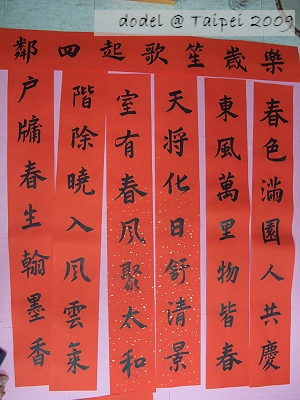 dodel @ Taipei 2009
樂歲笙歌起四鄰
春色滿園人共慶
東風萬里物皆春
天將化日舒清景
室有春風聚太和
階除曉入風雲氣
戶牖春生翰墨香